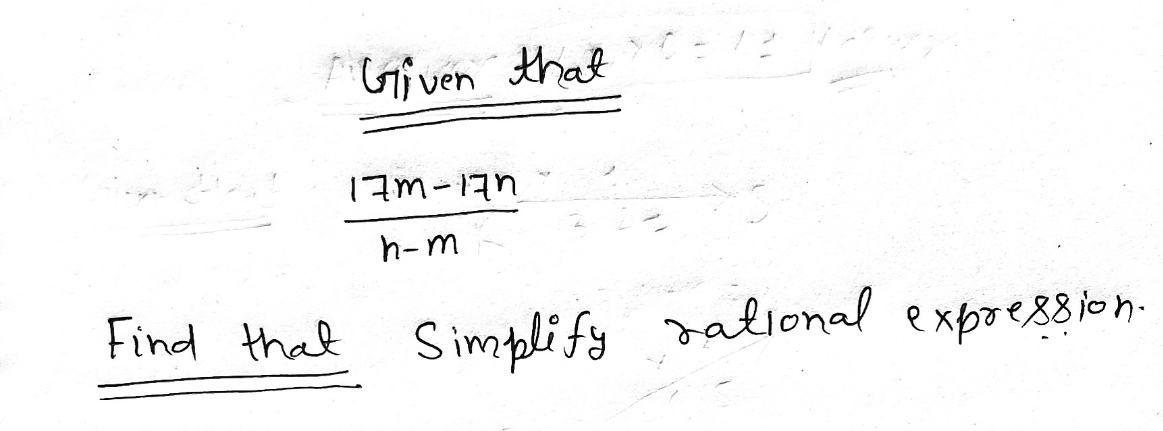 Given that
17m-17n
n-m
Find that Simplify rational expression.